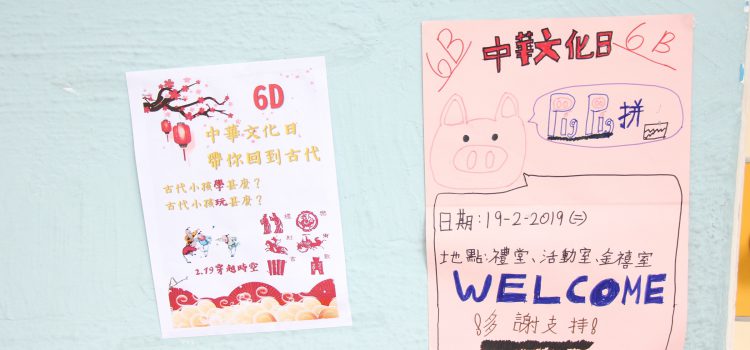 6D
中華文化日
帶你回到古代
古代小孩學甚麼？
古代小孩玩甚麼？
禮 樂
射 御
書 數
2.19穿越時空
6B 中華文化日 6B
PIg PIg 拼
日期:19-2-2019(二)
地點:禮堂、活動室、金禧室
WELCOME
多謝支持!